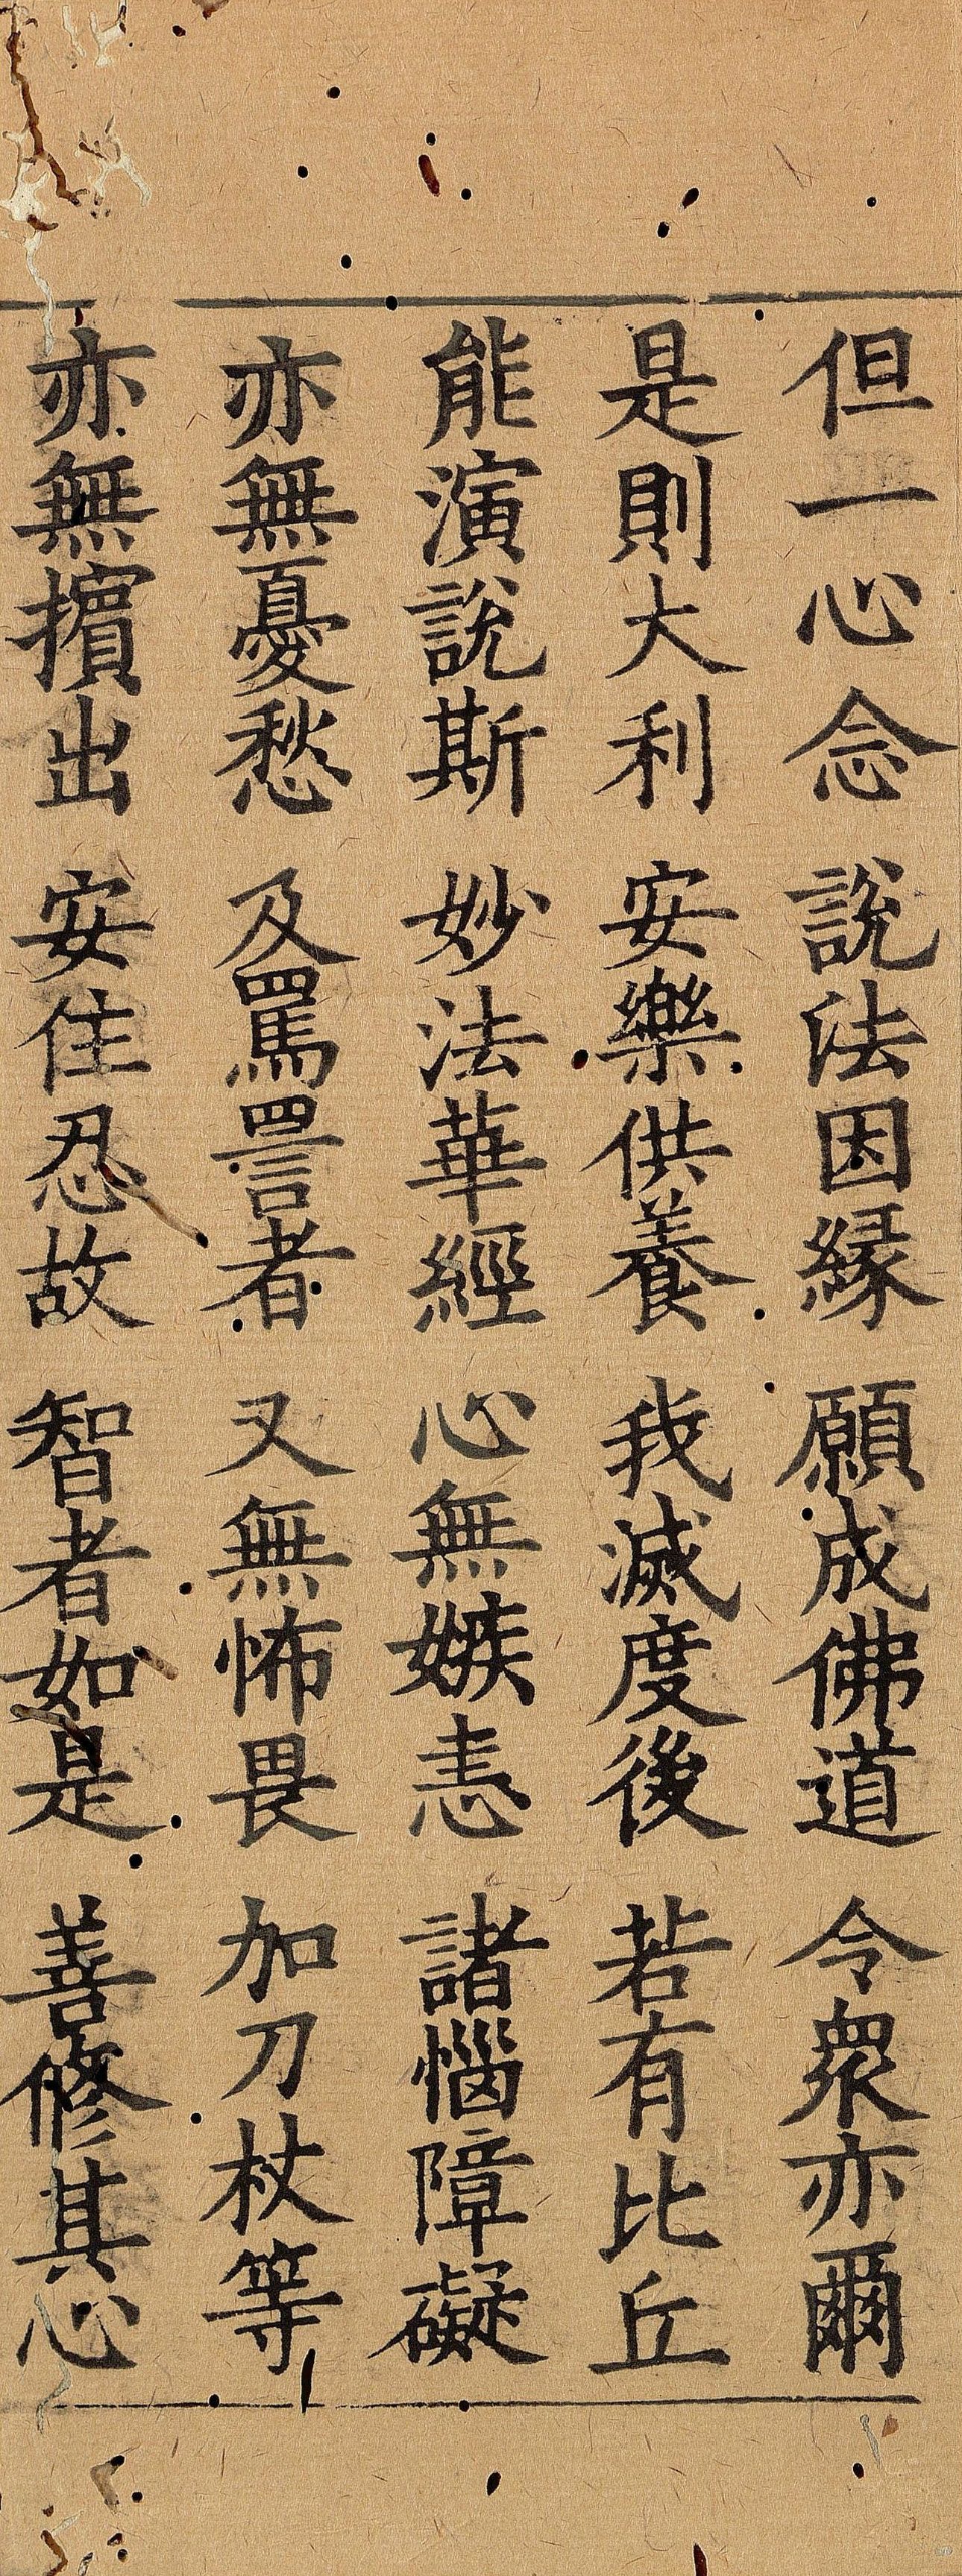 但一心念 說法因縁 願成佛道 令衆亦爾
是則大利 安樂供養 我滅度後 若有比丘
能演說斯 妙法華經 心無嫉恚 諸惱障礙
亦無憂愁 及罵詈者 又無怖畏 加刀杖等
亦無擯出 安住忍故 智者如是 善修其心